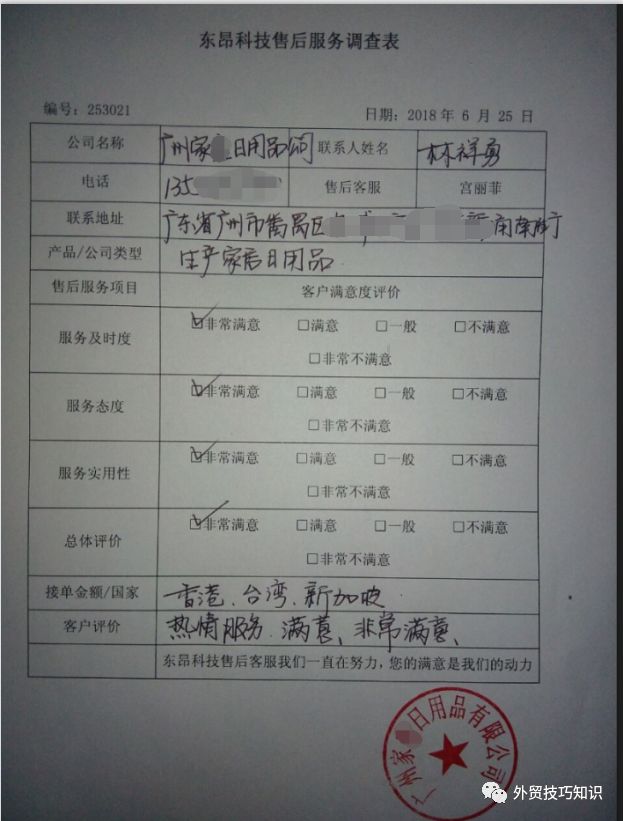 东昂科技售后服务调查表
编号：253021 日期：2018年 6 月 25 日
公司名称 广州家 日用品公司 联系人姓名 林祥勇
电话 135 售后客服 宫丽菲
联系地址 广东省广州市番禺区
产品/公司类型 生产家居日用品
售后服务项目 客户满意度评价
服务及时度 ☑非常满意 □满意 □一般 □不满意
□非常不满意
服务态度 ☑非常满意 □满意 □一般 □不满意
□非常不满意
服务实用性 ☑非常满意 □满意 □一般 □不满意
□非常不满意
总体评价 ☑非常满意 □满意 □一般 □不满意
□非常不满意
接单金额/国家 香港、台湾、新加坡
客户评价 热情服务、满意、非常满意、
东昂科技售后客服我们一直在努力，您的满意是我们的动力
广州家 日用品有限公司
外贸技巧知识